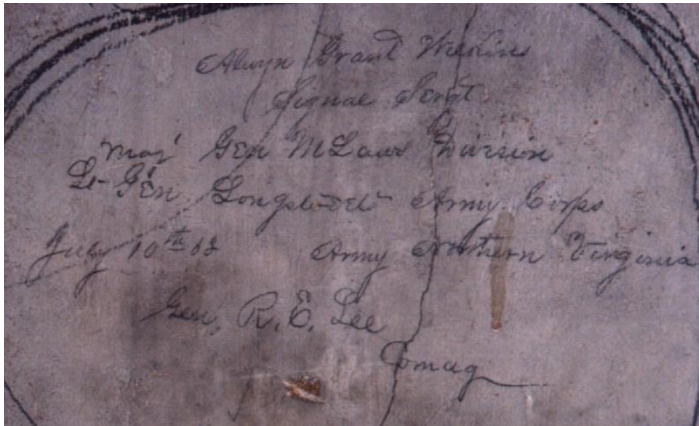 Alwyn Grant Wilkins
Signal Sergt
Maj Gen McLaws Division
Lt Gen Longstreet Army Corps
July 10th 63 Army Northern Virginia
Gen, R. E. Lee
Comag